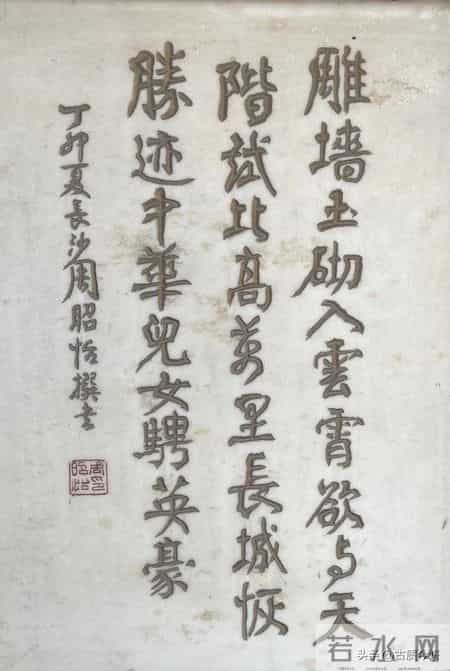 雕墙玉砌入雲霄欲与天
階試比高万里長城恢
勝迹中華兒女騁英豪
丁卯夏長沙周昭怡撰書
周昭怡印
头条@古
若水网